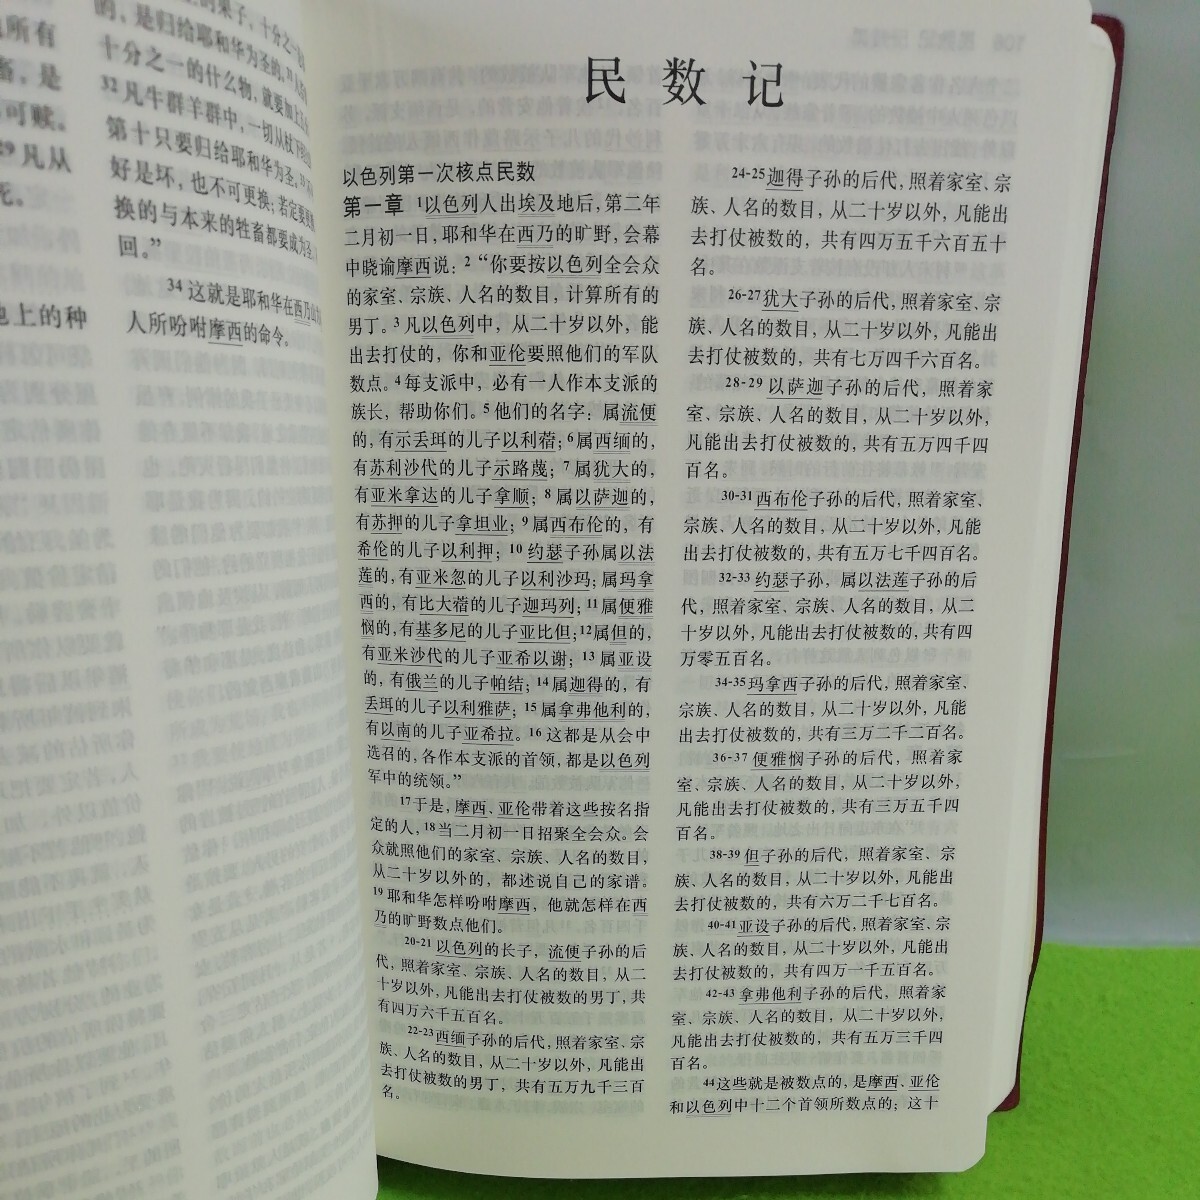 所有
畜，是
可赎。
29 凡从
死。
也上的种
的，是归给耶和华为圣的。
十分之一的什么物，就要加上
32 凡牛群羊群中，一切从杖下
第十只要归给耶和华为圣。
好是坏，也不可更换；若定要
换的与本来的牲畜都要成为圣
回。”
34 这就是耶和华在西乃山
人所吩咐摩西的命令。
民数记
以色列第一次核点民数
第一章 1以色列人出埃及地后，第二年
二月初一日，耶和华在西乃的旷野，会幕
中晓谕摩西说：2 “你要按以色列全会众
的家室、宗族、人名的数目，计算所有的
男丁。3 凡以色列中，从二十岁以外，能
出去打仗的，你和亚伦要照他们的军队
数点。4 每支派中，必有一人作本支派的
族长，帮助你们。5 他们的名字：属流便
的，有示丢珥的儿子以利蓿；6 属西缅的，
有苏利沙代的儿子示路蔑；7 属犹大的，
有亚米拿达的儿子拿顺；8 属以萨迦的，
有苏押的儿子拿坦业；9 属西布伦的，有
希伦的儿子以利押；10 约瑟子孙属以法
莲的，有亚米忽的儿子以利沙玛；属玛拿
西的，有比大蓿的儿子迦玛列；11 属便雅
悯的，有基多尼的儿子亚比但；12属但的，
有亚米沙代的儿子亚希以谢；13 属亚设
的，有俄兰的儿子帕结；14 属迦得的，有
丢珥的儿子以利雅萨；15 属拿弗他利的，
有以南的儿子亚希拉。16 这都是从会中
选召的，各作本支派的首领，都是以色列
军中的统领。”
17于是，摩西、亚伦带着这些按名指
定的人，18 当二月初一日招聚全会众。会
众就照他们的家室、宗族、人名的数目，
从二十岁以外的，都述说自己的家谱。
19 耶和华怎样吩咐摩西，他就怎样在西
乃的旷野数点他们。
20-21 以色列的长子，流便子孙的后
代，照着家室、宗族、人名的数目，从二
十岁以外，凡能出去打仗被数的男丁，共
有四万六千五百名。
22-23西缅子孙的后代，照着家室、宗
族、人名的数目，从二十岁以外，凡能出
去打仗被数的男丁，共有五万九千三百
名。
24-25迦得子孙的后代，照着家室、宗
族、人名的数目，从二十岁以外，凡能出
去打仗被数的，共有四万五千六百五十
名。
26-27犹大子孙的后代，照着家室、宗
族、人名的数目，从二十岁以外，凡能出
去打仗被数的，共有七万四千六百名。
28-29 以萨迦子孙的后代，照着家
室、宗族、人名的数目，从二十岁以外，
凡能出去打仗被数的，共有五万四千四
百名。
30-31 西布伦子孙的后代，照着家室、
宗族、人名的数目，从二十岁以外，凡能
出去打仗被数的，共有五万七千四百名。
32-33 约瑟子孙，属以法莲子孙的后
代，照着家室、宗族、人名的数目，从二
十岁以外，凡能出去打仗被数的，共有四
万零五百名。
34-35玛拿西子孙的后代，照着家室、
宗族、人名的数目，从二十岁以外，凡能
出去打仗被数的，共有三万二千二百名。
36-37 便雅悯子孙的后代，照着家
室、宗族、人名的数目，从二十岁以外，
凡能出去打仗被数的，共有三万五千四
百名。
38-39 但子孙的后代，照着家室、宗
族、人名的数目，从二十岁以外，凡能出
去打仗被数的，共有六万二千七百名。
40-41 亚设子孙的后代，照着家室、宗
族、人名的数目，从二十岁以外，凡能出
去打仗被数的，共有四万一千五百名。
42-43 拿弗他利子孙的后代，照着家
室、宗族、人名的数目，从二十岁以外，
凡能出去打仗被数的，共有五万三千四
百名。
44这些就是被数点的，是摩西、亚伦
和以色列中十二个首领所数点的；这十